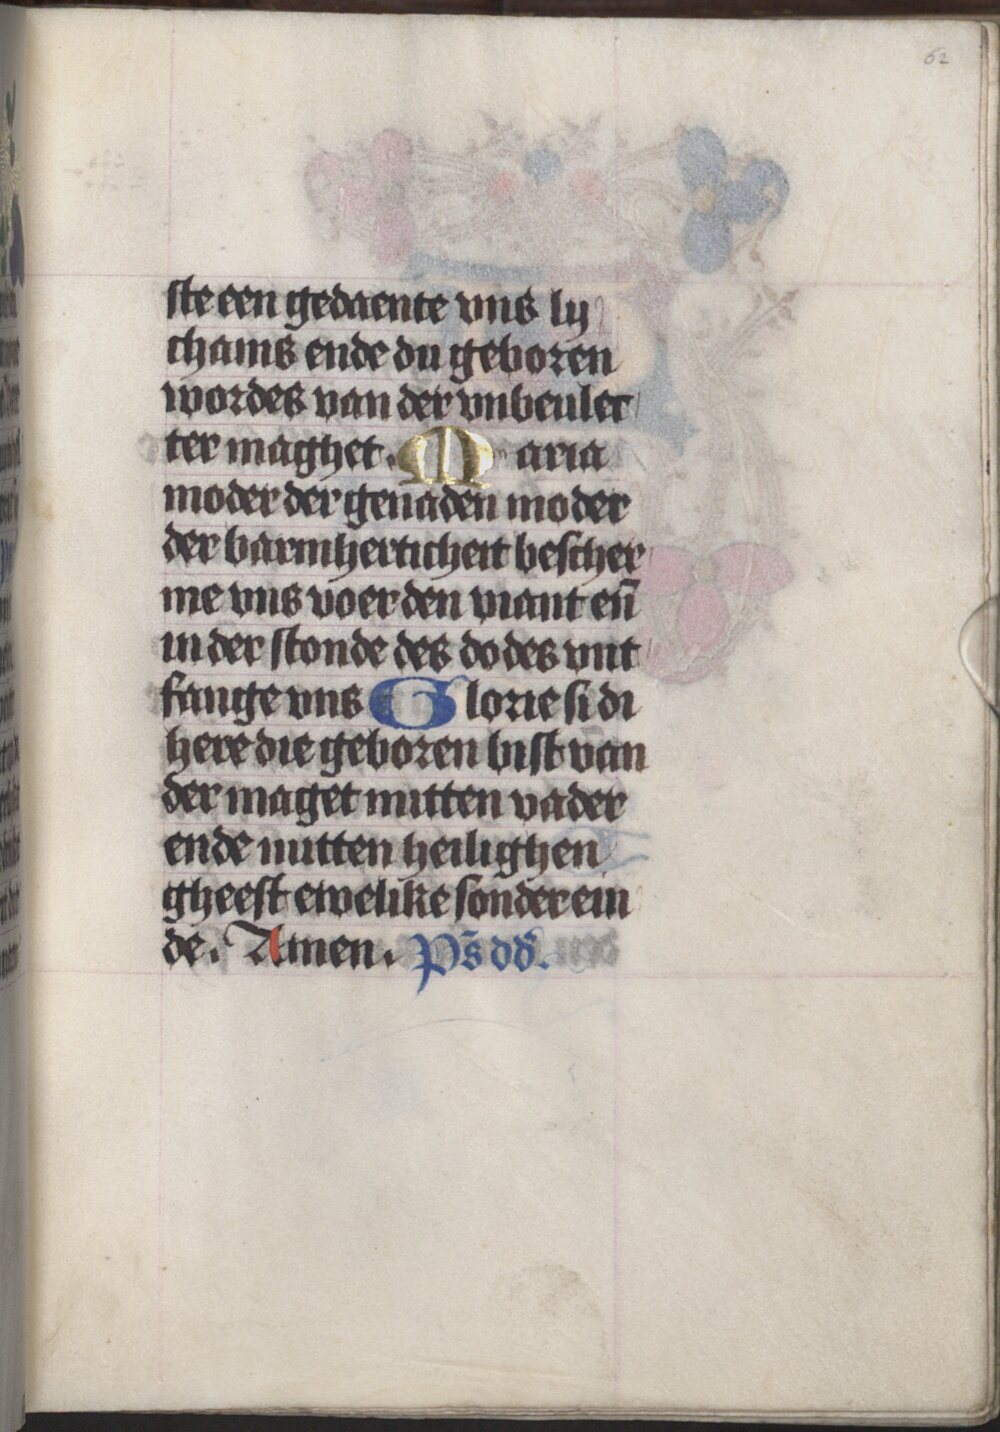 62
ste een gedaente vns ly
chams ende du geboren
wordes van der vnbeulec
ter maghet. Maria
moder der genaden moder
der barmherticheit bescher
me vns voer den viant en̄
in der stonde des dodes vnt
fange vns Glorie si di
here die geboren bist van
der maget mitten vader
ende mitten heilighen
gheest ewelike sonder ein
de. Amen. Ps̄ dd̄.